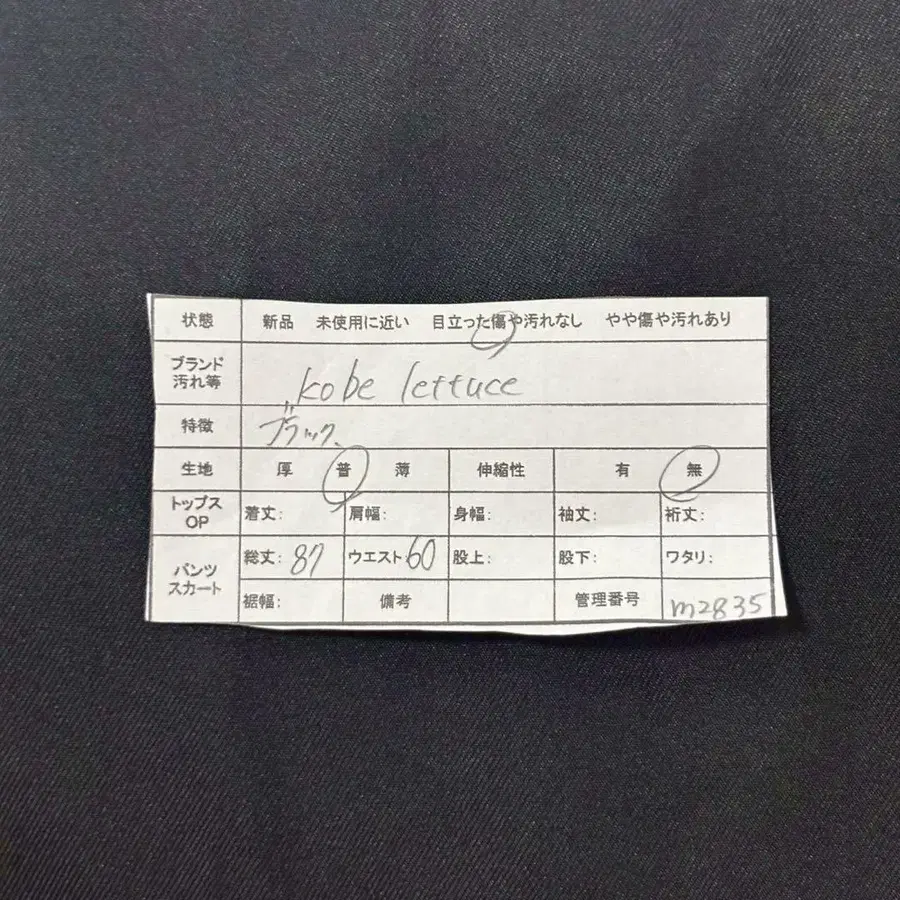 状態 新品 未使用に近い 目立った傷や汚れなし やや傷や汚れあり
ブランド
汚れ等 kobe lettuce
特徴 ブラック、
生地 厚 普 薄 伸縮性 有 無
トップス
OP 着丈: 肩幅: 身幅: 袖丈: 裄丈:
パンツ
スカート 総丈: 87 ウエスト 60 股上: 股下: ワタリ:
裾幅: 備考 管理番号 m2835